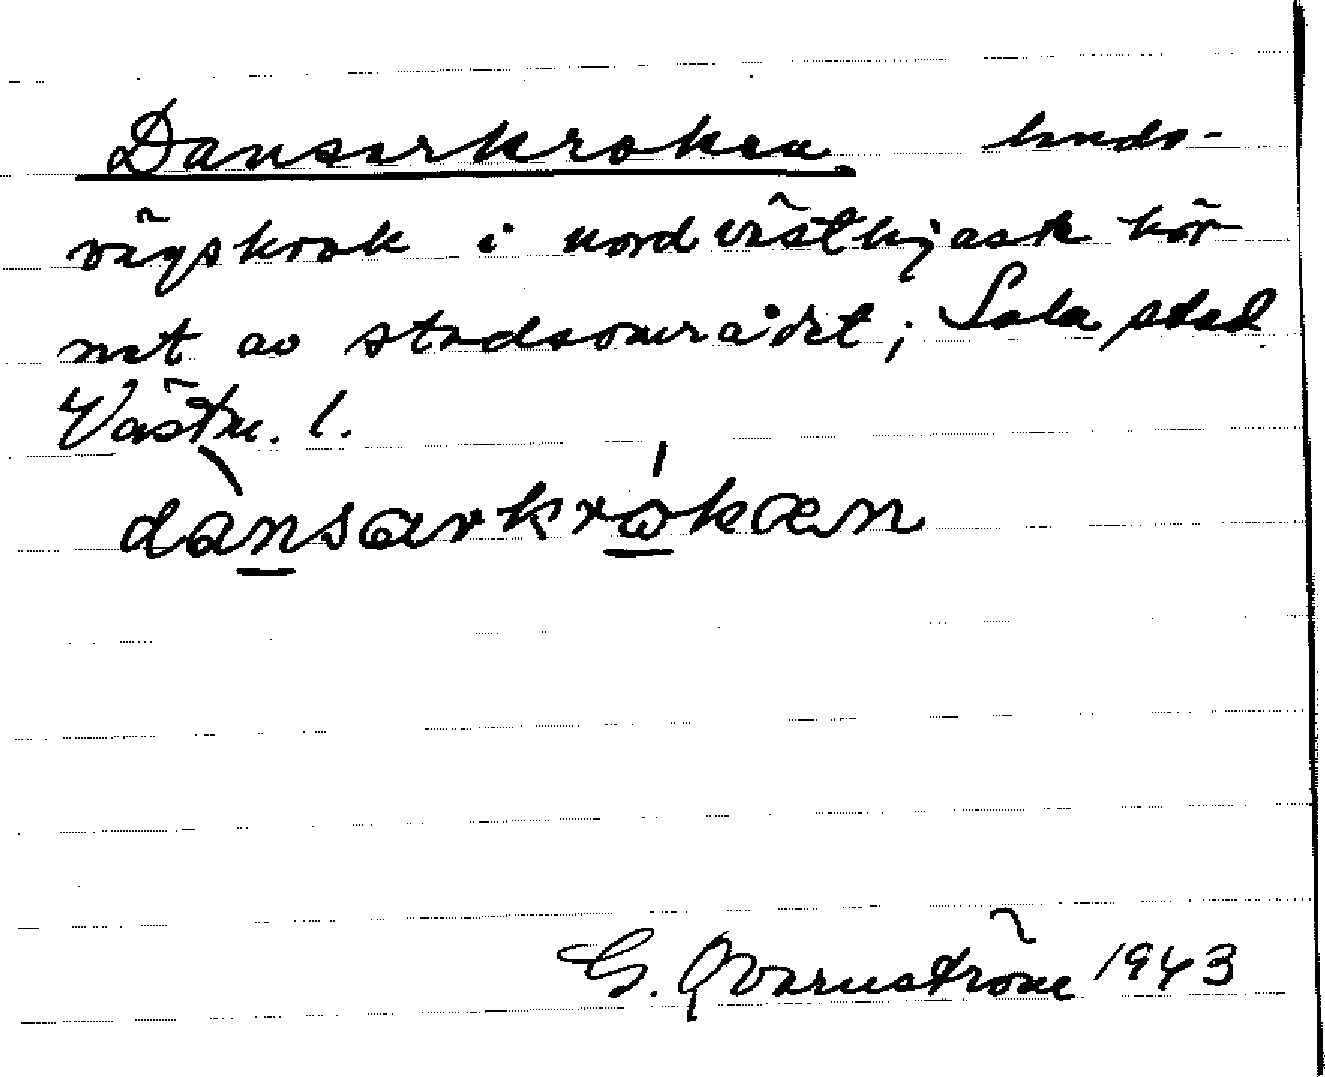 Dansarkroken lands-
vägskrok i nordvästligaste hör
net av stadsområdet; Sala stad
Västm. l.
dànsarkrókæn
G. Qvarnström 1943